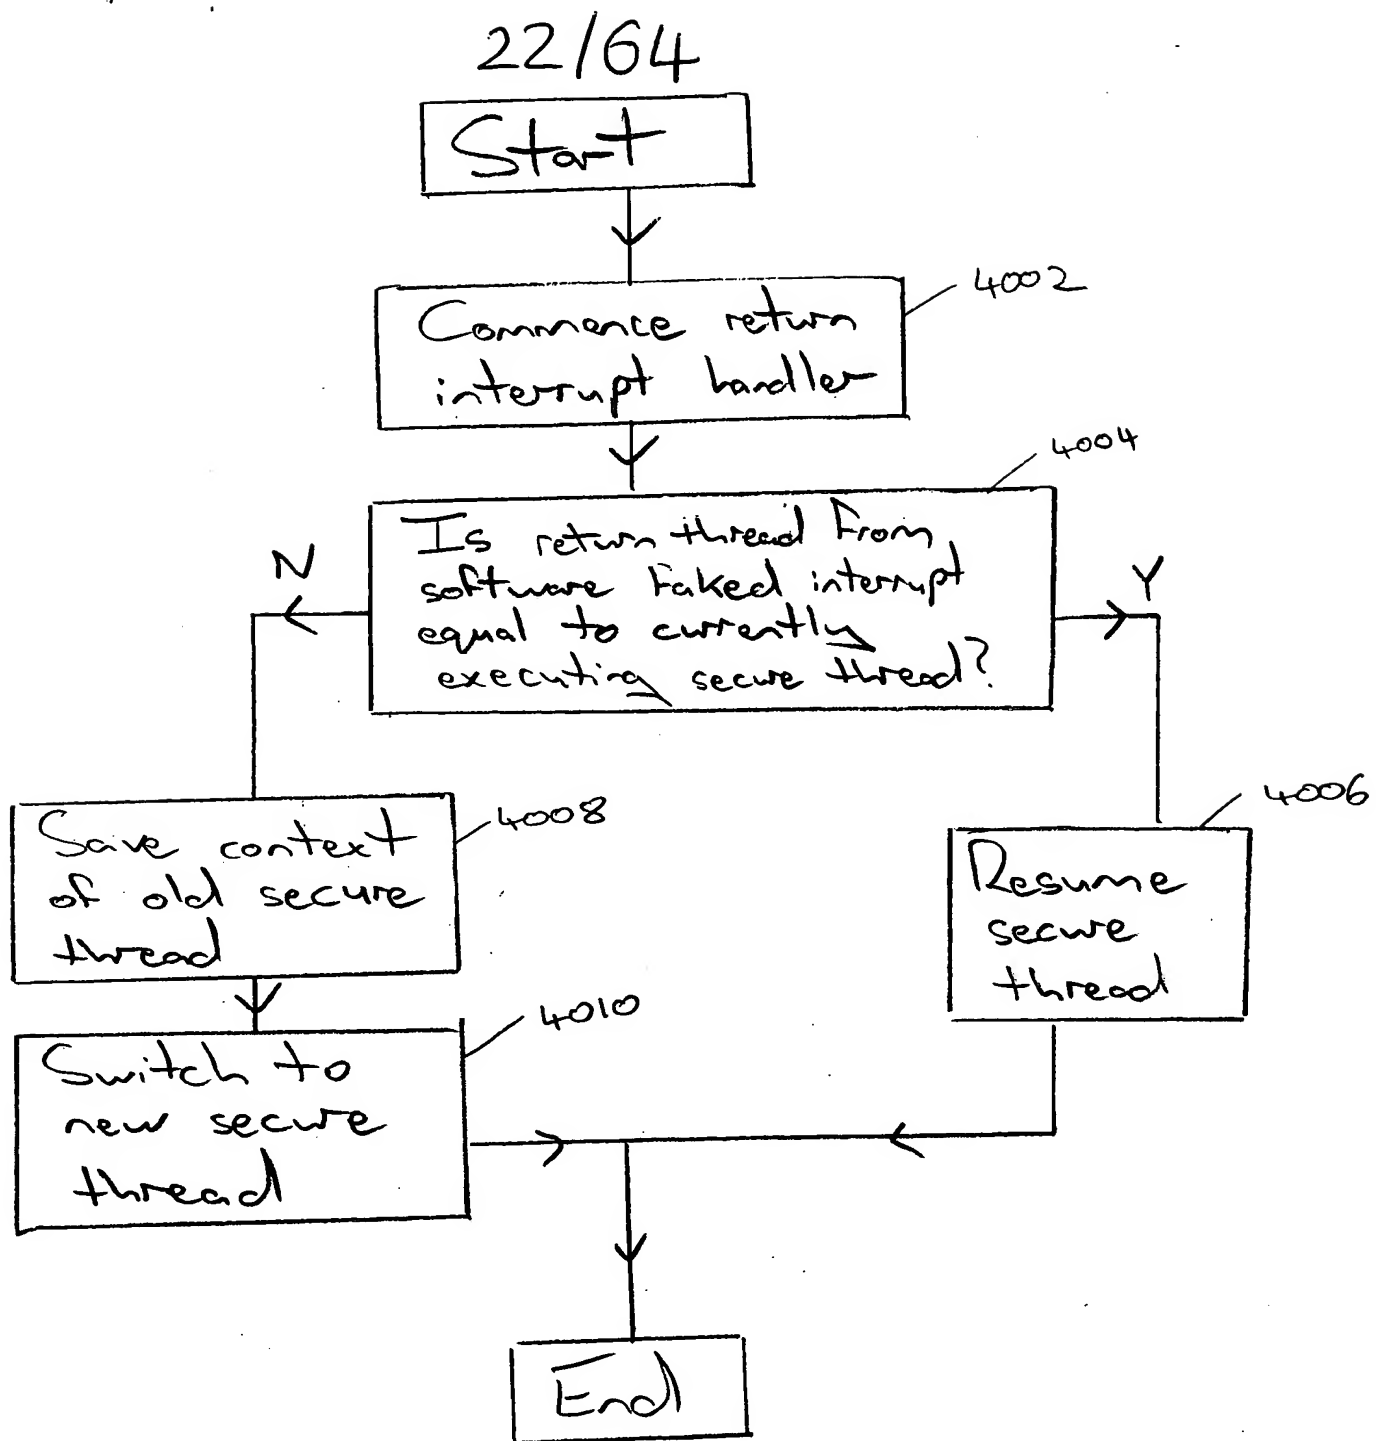 22/64
Start
Commence return
interrupt handler
4002
4004
Is return thread from
software faked interrupt
equal to currently
executing secure thread?
N
Y
Save context
of old secure
thread
4008
Resume
secure
thread
4006
Switch to
new secure
thread
4010
End